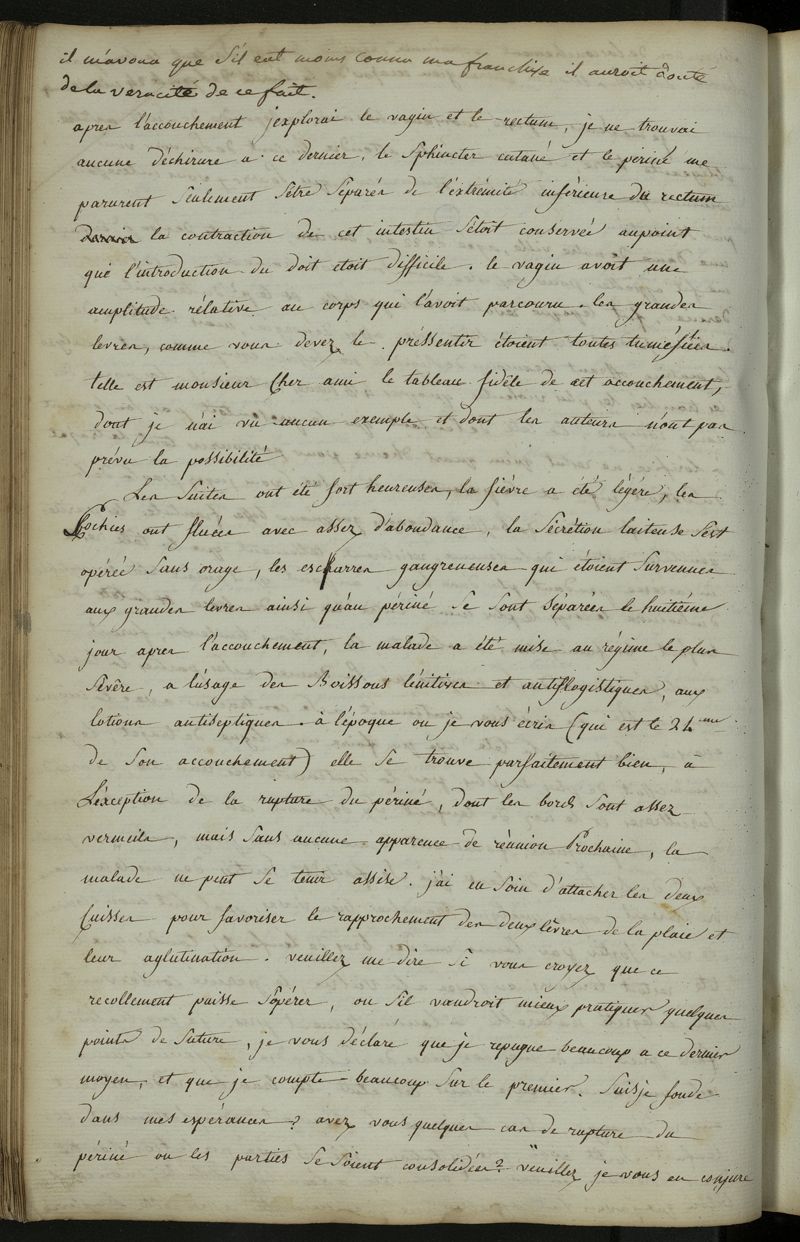 il m'avoua que s'il eut moins connu ma franchise il auroit douté
de la veracité de ce fait.
apres l'accouchement j'explorai le vagin et le rectum, je ne trouvai
aucune déchirure a ce dernier, le Sphincter cutané et le périné me
parurent Seulement S'être Séparés de l'éxtrémité inférieure du rectum
la contraction de cet intestin S'étoit conservée aupoint
que l'introduction du doit etoit difficile. le vagin avoit une
amplitude rélative au corps qui l'avoit parcouru. les grandes
levres, comme vous devez le préssentir étoient toutes tuméfiées.
telle est monsieur Cher ami le tableau fidéle de cet accouchement,
dont je n'ai vu aucun exemple et dont les auteurs n'ont pas
prévu la possibilité
Les Suites ont été fort heureuses, la fiévre a été légére, les
Lochies ont fluées avec assez d'abondance, la Sécrétion laiteuse S'est
opérée Sans orage, les escharres gangreneuses qui étoient Survenues
aux grandes levres ainsi qu'au périné Se Sont Séparées le huitiéme
jour apres l'accouchement, la malade a été mise au régime le plus
Sévêre, a l'usage des Boissons lénitives et antiflogistiques, aux
lotions antiseptiques. à l'époque ou je vous écris (qui est le 24me
de Son accouchement) elle Se trouve parfaitement bien, à
L'éxception de la rupture du périné, dont les bords Sont assez
vermeils, mais Sans aucune apparence de réunion Prochaine, la
malade ne peut Se tenir assise. j'ai eu Soin d'attacher les deux
Cuisses pour favoriser le rapprochement des deux lêvres de la plaie et
leur aglutination. veuillez me dire Si vous croyez que ce
recollement puisse S'opérer, ou S'il vaudroit mieux pratiquer quelques
points de Suture, je vous déclaré que je repugne beaucoup a ce dernier
moyen, et que je compte beaucoup Sur le premier. Suisje fondé
dans mes espérances? avez vous quelques cas de rupture du
périné ou les parties Se Soient consolidées? veuillez je vous en conjure